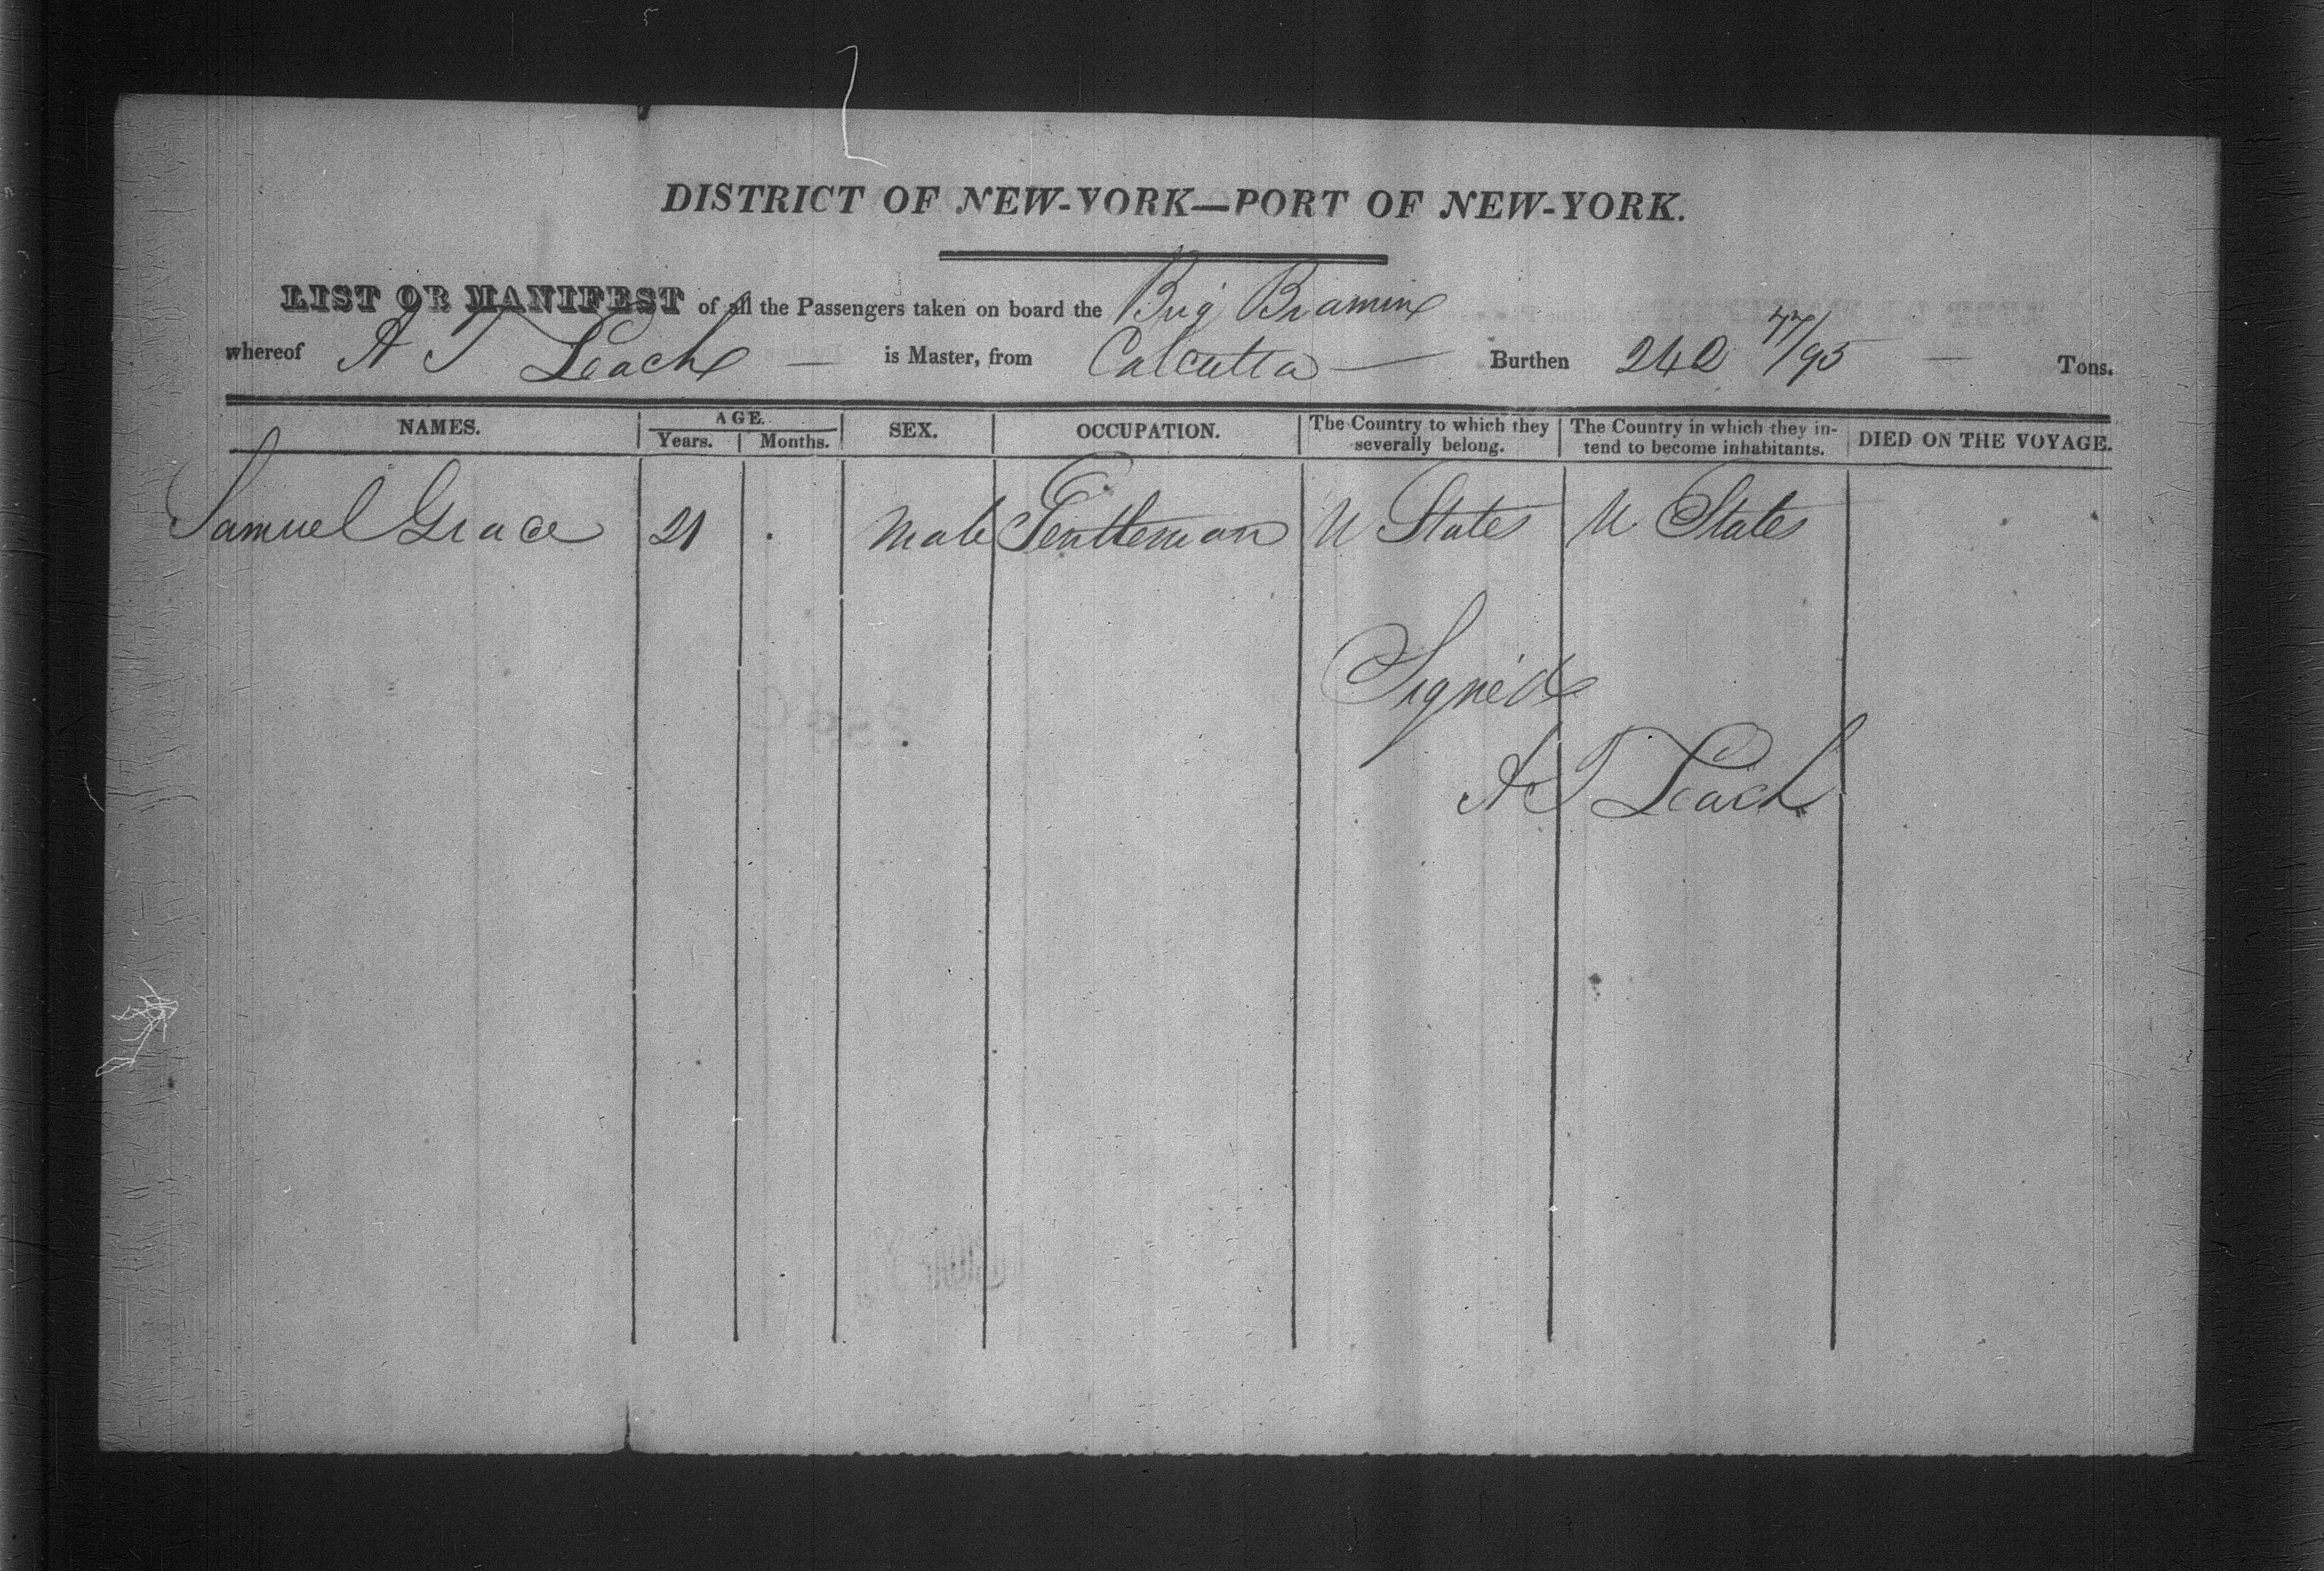 DISTRICT OF NEW-YORK—PORT OF NEW-YORK.
LIST OR MANIFEST of all the Passengers taken on board the Brig Bramin
whereof A T Leach — is Master, from Calcutta — Burthen 242 77/95 — Tons.
NAMES. AGE. SEX. OCCUPATION. The Country to which they severally belong. The Country in which they intend to become inhabitants. DIED ON THE VOYAGE.
Years. Months.
Samuel Grace 21 . Male Gentleman U States U States
Signed
A T Leach